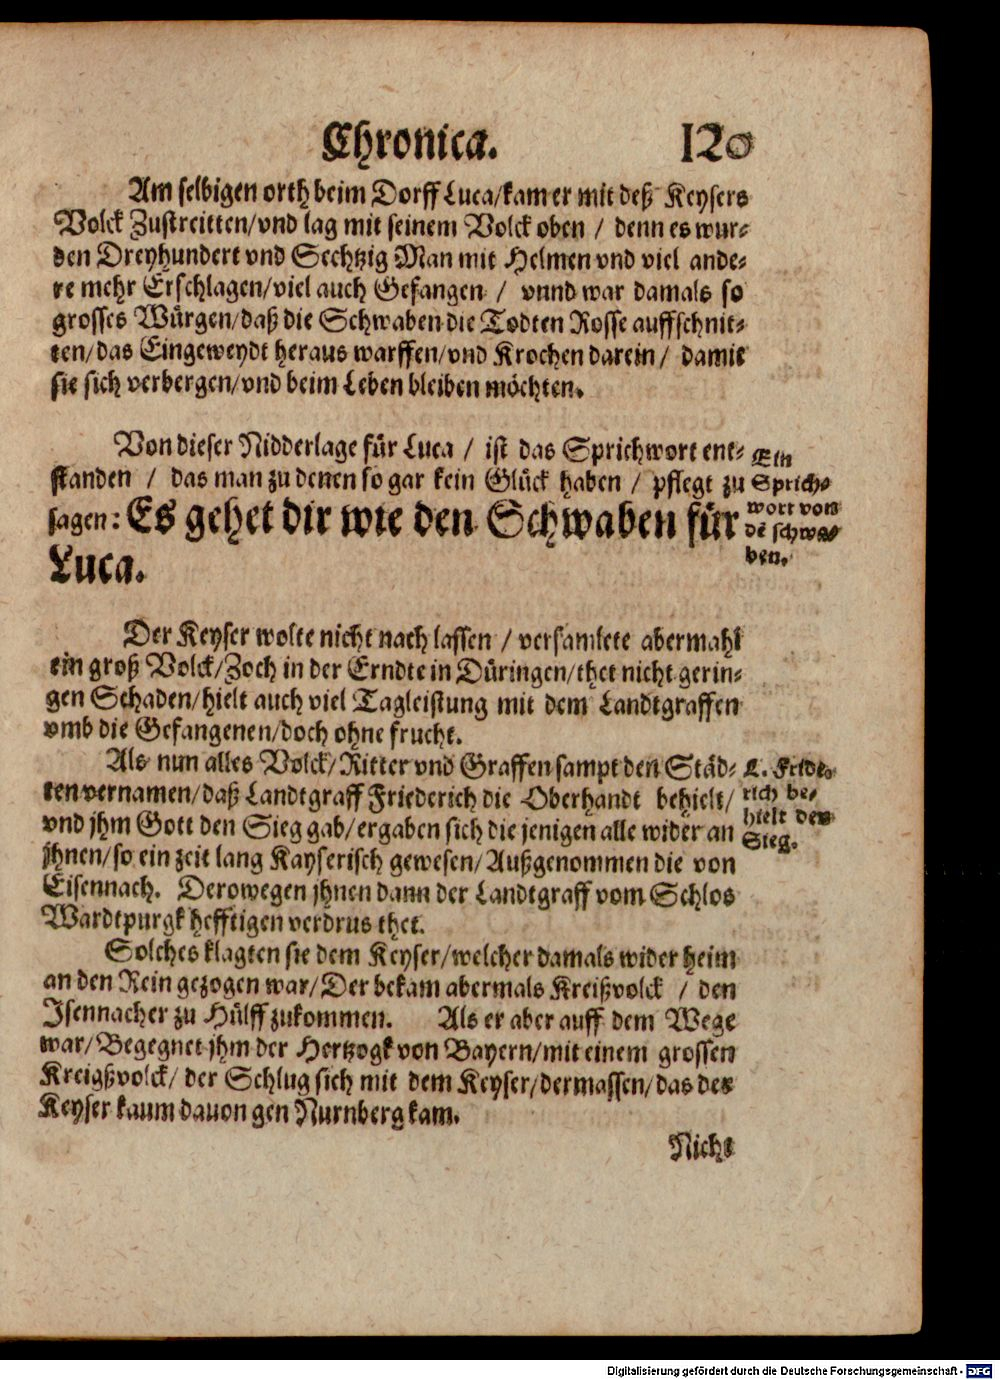 Chronica. 120
Am selbigen orth beim Dorff Luca/kam er mit deß Keysers
Volck Zustreitten/vnd lag mit seinem Volck oben / denn es wur⸗
den Dreyhundert vnd Sechtzig Man mit Helmen vnd viel ande⸗
re mehr Erschlagen/viel auch Gefangen / vnnd war damals so
grosses Würgen/daß die Schwaben die Todten Rosse auffschnit⸗
ten/das Eingeweydt heraus warffen/vnd Krochen darein / damit
sie sich verbergen/vnd beim Leben bleiben möchten.
Von dieser Nidderlage für Luca / ist das Sprichwort ent⸗
standen / das man zu denen so gar kein Glück haben / pflegt zu
sagen: Es gehet dir wie den Schwaben für
Luca.
Ein
Sprich⸗
wort von
dē schwa⸗
ben.
Der Keyser wolte nicht nach lassen / versamlete abermahl
ein groß Volck/Zoch in der Erndte in Düringen/thet nicht gerin⸗
gen Schaden/hielt auch viel Tagleistung mit dem Landtgraffen
vmb die Gefangenen/doch ohne frucht.
Als nun alles Volck/Ritter vnd Graffen sampt den Städ⸗
ten vernamen/daß Landtgraff Friederich die Oberhandt behielt/
vnd jhm Gott den Sieg gab/ergaben sich die jenigen alle wider an
jhnen/so ein zeit lang Kayserisch gewesen/Außgenommen die von
Eisennach. Derowegen jhnen dann der Landtgraff vom Schlos
Wardtpurgk hefftigen verdrus thet.
L. Fride⸗
rich be⸗
hielt den
Sieg.
Solches klagten sie dem Keyser/welcher damals wider heim
an den Rein gezogen war/Der bekam abermals Kreißvolck / den
Isennacher zu Hülff zukommen. Als er aber auff dem Wege
war/Begegnet jhm der Hertzogk von Bayern/mit einem grossen
Kreigßvolck/ der Schlug sich mit dem Keyser/dermassen/das der
Keyser kaum dauon gen Nurnberg kam.
Nicht
Digitalisierung gefördert durch die Deutsche Forschungsgemeinschaft - DFG